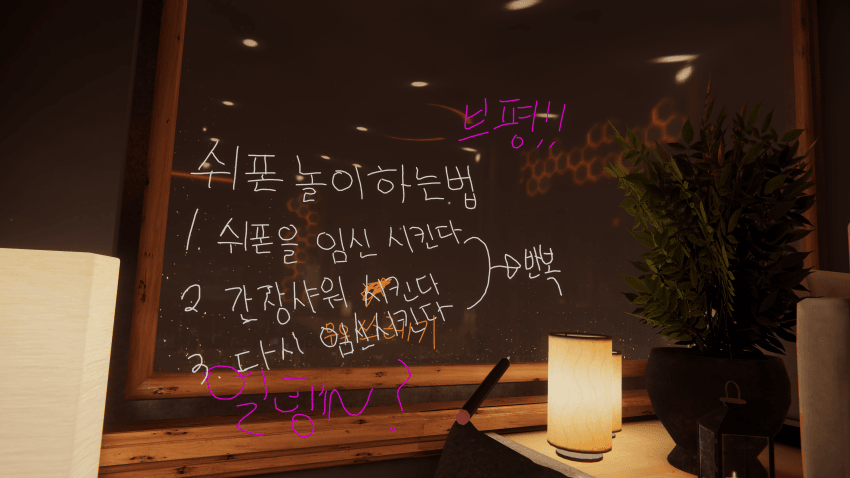 브평!!
쉬폰 놀이하는법
1. 쉬폰을 임신 시킨다
2. 간장샤워 시킨다
→반복
3. 다시 임신시킨다